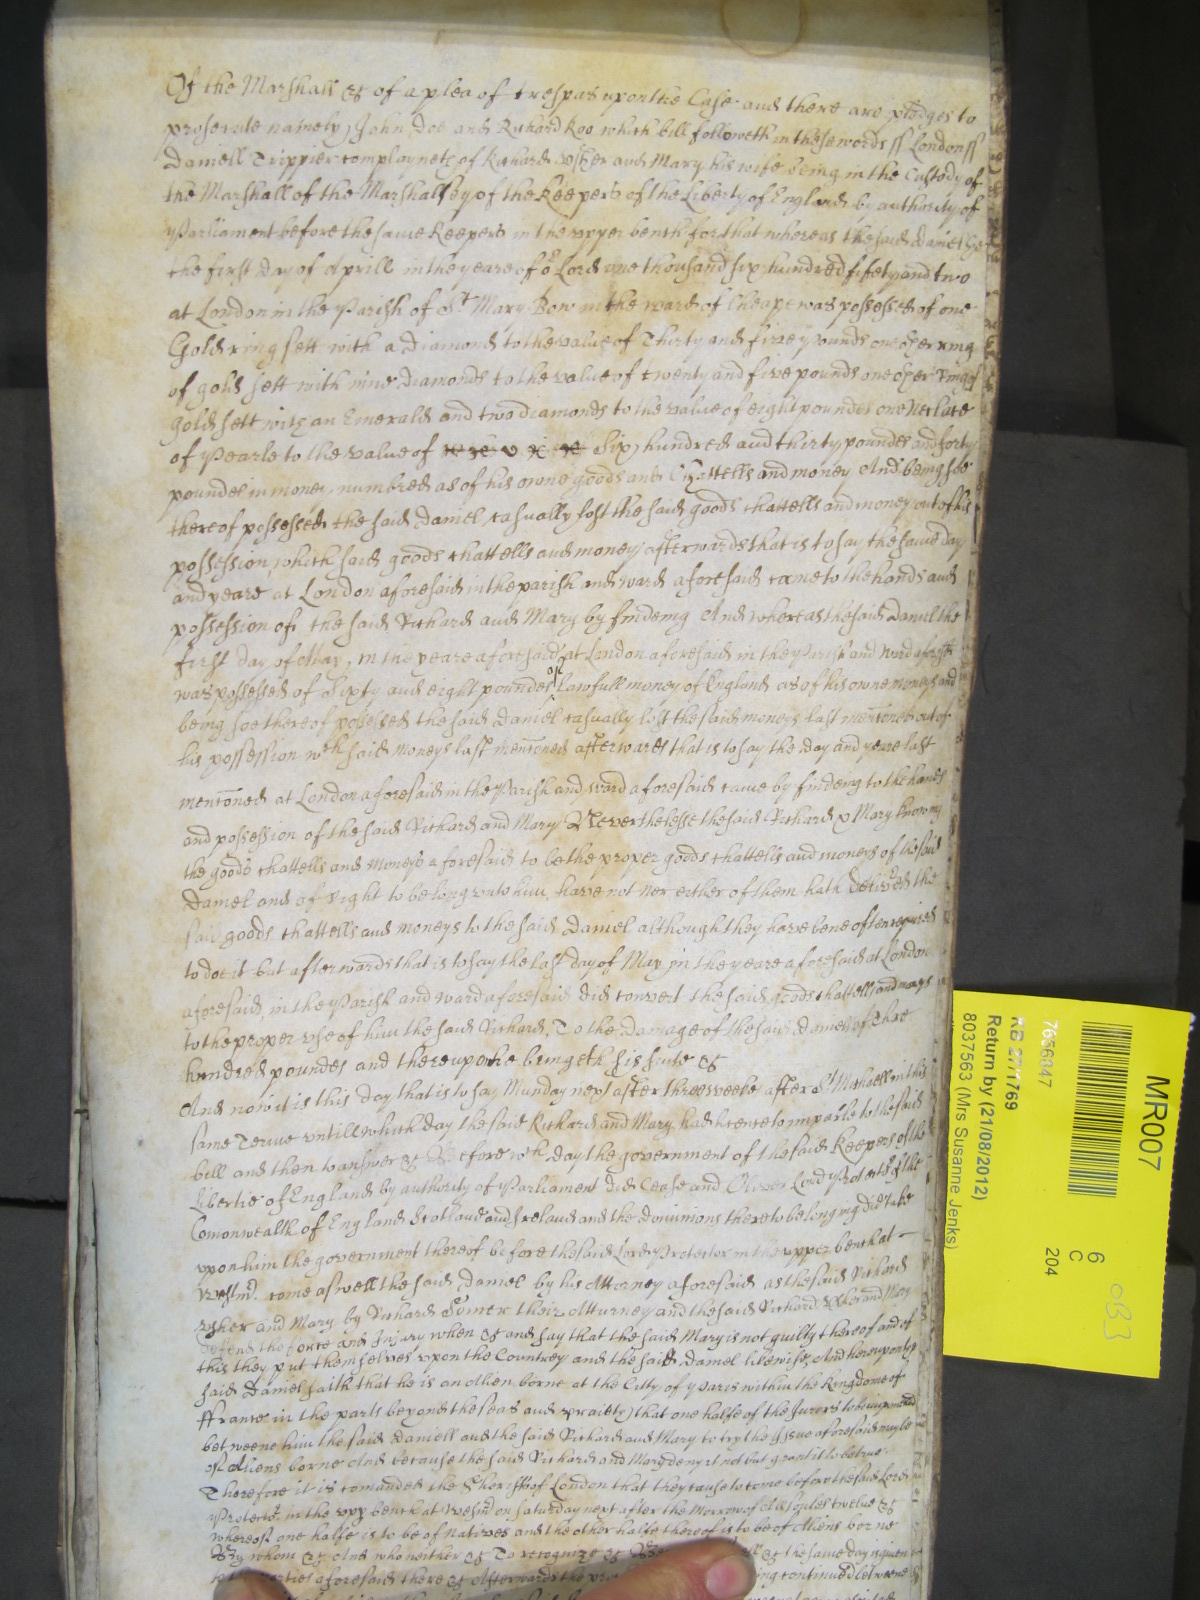 Of the Marshall &c of a plea of trespas upon the Case and there are pledges to
prosecute namely John Doe and Richard Roo which bill followeth in these words ss London ss
Daniell Trippier complayneth of Richard Usher and Mary his wife being in the Custody of
the Marshall of the Marshallsey of the Keepers of the Liberty of England by authority of
Parliament before the same Keepers in the upper bench for that whereas the said Daniel the
the first day of Aprill in the yeare of or Lord one thousand six hundred fifety and two
at London in the Parish of St Mary Bow in the ward of Cheape was possessed of one
Gold ring sett with a diamond to the value of Thirty and five pounds one other ring
of gold sett with nine diamonds to the value of twenty and five pounds one other ring of
gold sett with an Emerald and two diamonds to the value of eight poundes one Neclace
of Pearle to the value of Six hundred and thirty poundes and forty
poundes in money numbred as of his owne goods and Chattells and money And being soe
thereof possessed the said Daniel casually lost the said goods chattells and money out of his
possession which said goods chattells and money afterwards that is to say the same day
and yeare at London aforesaid in the parish and ward aforesaid came to the hands and
possession of the said Richard and Mary by findeing And whereas the said Daniel the
first day of May in the yeare aforesaid at London aforesaid in the Parish and ward aforesd
was possessed of Sixty and eight poundes of lawfull money of England as of his owne moneys and
being soe thereof possessed the said Daniel casually lost the said moneys last menconed out of
his possession wch said moneys last menconed afterwards that is to say the day and yeare last
menconed at London aforesaid in the Parish and ward aforesaid came by findeing to the hands
and possession of the said Richard and Mary Neverthelesse the said Richard & Mary knowing
the goods chattells and moneys aforesaid to be the proper goods chattells and moneys of the said
Daniel and of right to belong unto him have not nor either of them hath delivred the
said goods chattells and moneys to the said Daniel although they have bene often required
to doe it but afterwards that is to say the last day of May in the yeare aforesaid at London
aforesaid in the Parish and ward aforesaid did convert the said goods chattells and moneys
to the proper use of him the said Richard To the damage of the said Daniel of
hundred poundes and thereupon he bringeth his suite &c
And now at this day that is to say Munday next after three weeks after St Michaell in this
same Terme untill which day the said Richard and Mary had licence to imparle to the said
bill and then to answer &c Before wch day the government of the said Keepers of the
Libertie of England by authority of Parliament did Cease and Oliver Lord Protector of the
Comonwealth of England Scotland and Ireland and the dominions thereto belonging did take
upon him the government thereof before the said Lord Protector in the upper bench at
Westmr come aswell the said Daniel by his Attorney aforesaid as the said Richard
Usher and Mary by Richard their Atturney and the said Richard Usher and Mary
defend the force and Injury when &c and say that the said Mary is not guilty thereof and of
this they put themselves upon the Countrey and the said Daniel likewise And hereupon the
said Daniel saith that he is an Alien borne at the Citty of Paris within the Kingdome of
ffrance in the parts beyond the seas and that one halfe of the Jurors to be impanelled
betweene him the said Daniell and the said Richard and Mary to try the issue aforesaid maybe
of Aliens borne And because the said Richard and Mary deny it not but grant it to be true
Therefore it is comanded the Sheriffs of London that they cause to come before the said Lord
Protector in the upp bench at Westmr on Saturday next after the Morrow of All soules twelve &c
whereof one halfe is to be of Natives and the other halfe thereof is to be of Aliens borne
By whom &c And who neither &c To recognize &c &c the same day is given
parties aforesaid there &c Afterwards the continued betweene
MR007
6
C
204
083
7656847
KB 27/1769
Return by (21/08/2012)
8037563 (Mrs Susanne Jenks)